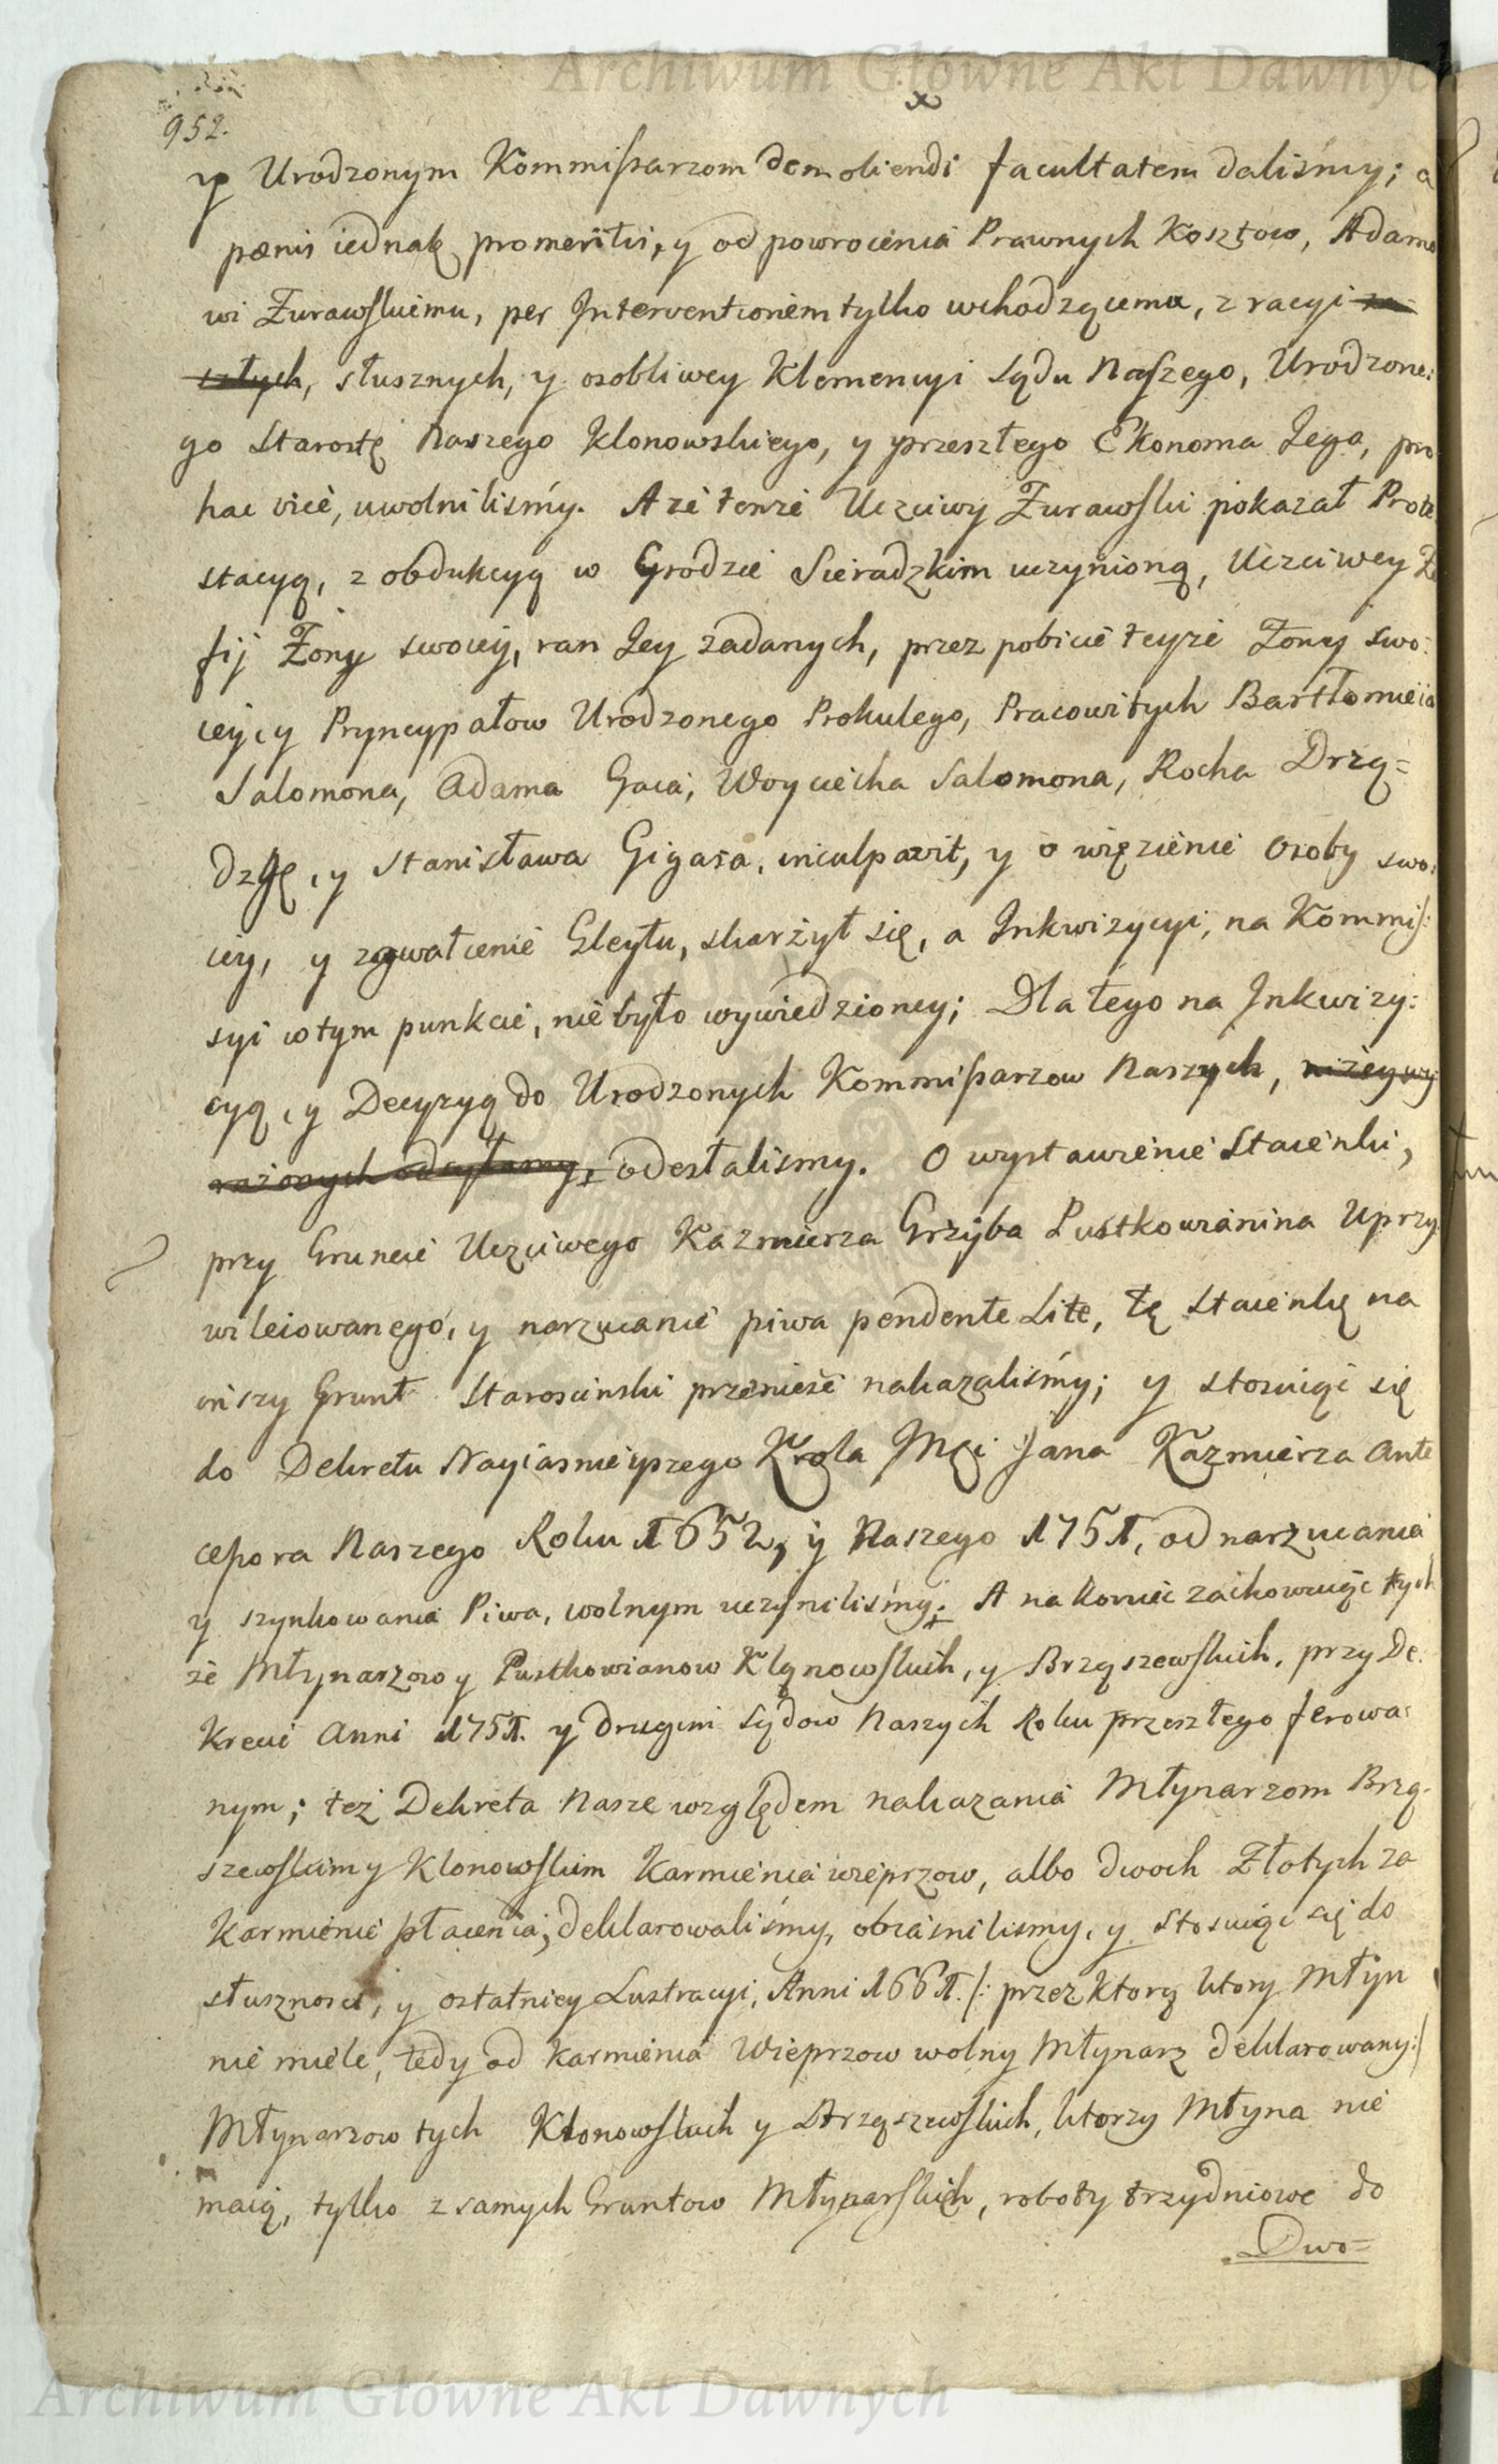 Archiwum Główne Akt Dawnych
952.
y Urodzonym Kommissarzom demoliendi facultatem daliśmy; a
pœnis iednak promeritis, y od powrocenia Prawnych Kosztow, Adamo
wi Żurawskiemu, per Interventionem tylko wchodzącemu, z racyi za
szłych, słusznych, y osobliwey Klemencyi Sądu Naszego, Urodzone:
go Starostę Naszego Klonowskiego, y przeszłego Ekonoma Jego, pro
hac vice, uwolniliśmy. A że tenże Uczciwy Żurawski pokazał Prote
stacyą, z obdukcyą w Grodzie Sieradzkim uczynioną, Uczciwey Zo
fij Żony swoiey, ran Jey zadanych, przez pobicie teyże Żony swo:
iey, y Pryncypałow Urodzonego Prokulego, Pracowitych Bartłomieia
Salomona, Adama Gaca, Woyciecha Salomona, Rocha Drzą=
dzgę, y Stanisława Gigasa, inculpavit, y o więzienie Osoby swo:
iey, y zgwałcenie Gleytu, skarżył się, a Inkwizycyi, na Kommis:
syi w tym punkcie, nie było wywiedzioney; Dla tego na Inkwizy:
cyą, y Decyzyą do Urodzonych Kommissarzow Naszych, niżey wy
rażonych odsyłamy, odesłalismy. O wystawienie Stacienki,
przy Gruncie Uczciwego Kazmierza Grzyba Pustkowianina Uprzy
wileiowanego, y narzucanie piwa pendente Lite, tę Stacienkę na
inszy Grunt Starosciński przenieść nakazaliśmy; y stosuiąc się
do Dekretu Nayiasnieyszego Krola Mci Jana Kazmierza Ante
cessora Naszego Roku 1652, y Naszego 1751, od narzucania
y szynkowania Piwa, wolnym uczyniliśmy. A na koniec zachowuiąc tych
że Młynarzow y Pustkowianow Klonowskich, y Brząszewskich, przy De:
krecie Anni 1751. y drugim Sądow Naszych Roku przeszłego ferowa:
nym; też Dekreta Nasze względem nakazania Młynarzom Brzą:
szewskim y Klonowskim Karmienia wieprzow, albo dwoch Złotych za
Karmienie płacenia, deklarowaliśmy, obiasnilismy, y stosuiąc się do
słusznosci, y ostatniey Lustracyi, Anni 1661. /: przez ktorą ktory Młyn
nie miele, tedy od karmienia Wieprzow wolny Młynarz deklarowany :/
Młynarzow tych Klonowskich y Brząszewskich, ktorzy Młyna nie
maią, tylko z samych Gruntow Młynarskich, roboty trzydniowe do
Dwo=
Archiwum Główne Akt Dawnych